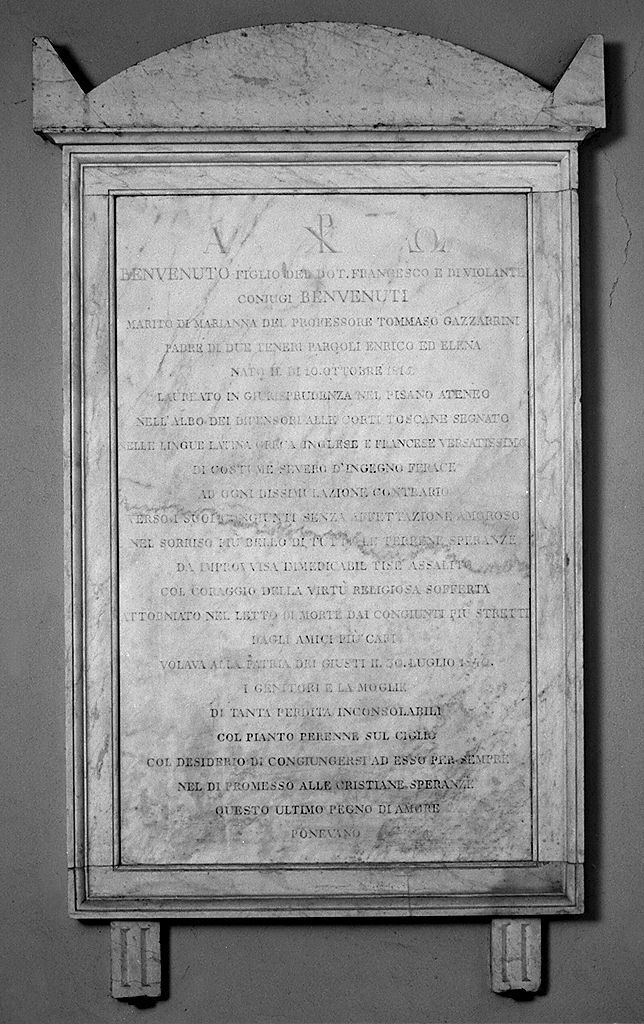 Α ☧ Ω
BENVENUTO FIGLIO DEL DOT. FRANCESCO E DI VIOLANTE
CONIUGI BENVENUTI
MARITO DI MARIANNA DEL PROFESSORE TOMMASO GAZZARRINI
PADRE DI DUE TENERI PARGOLI ENRICO ED ELENA
NATO IL DI 10. OTTOBRE
LAUREATO IN GIURISPRUDENZA NEL PISANO ATENEO
NELL'ALBO DEI DIFENSORI ALLE CORTI TOSCANE SEGNATO
NELLE LINGUE LATINA GRECA INGLESE E FRANCESE VERSATISSIMO
DI COSTUME SEVERO D'INGEGNO FERACE
AD OGNI DISSIMULAZIONE CONTRARIO
VERSO I SUOI CONGIUNTI SENZA AFFETTAZIONE AMOROSO
NEL SORRISO PIÙ BELLO DI TUTTE LE TERRENE SPERANZE
DA IMPROVVISA IMMEDICABIL TISE ASSALITO
COL CORAGGIO DELLA VIRTÙ RELIGIOSA SOFFERTA
ATTORNIATO NEL LETTO DI MORTE DAI CONGIUNTI PIÙ STRETTI
DAGLI AMICI PIÙ CARI
VOLAVA ALLA PATRIA DEI GIUSTI IL 30. LUGLIO
I GENITORI E LA MOGLIE
DI TANTA PERDITA INCONSOLABILI
COL PIANTO PERENNE SUL CIGLIO
COL DESIDERIO DI CONGIUNGERSI AD ESSO PER SEMPRE
NEL DI PROMESSO ALLE CRISTIANE SPERANZE
QUESTO ULTIMO PEGNO DI AMORE
PONEVANO